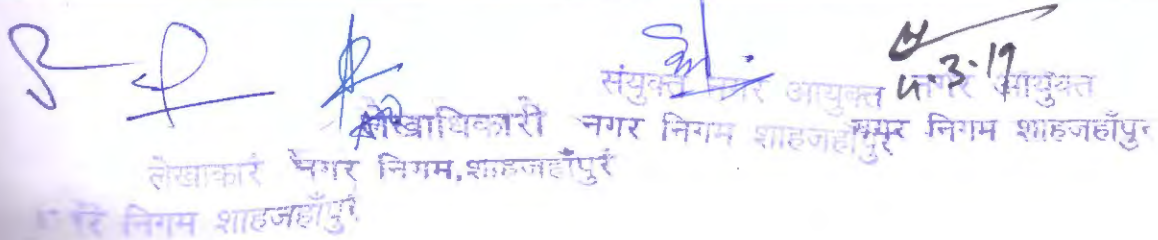 संयुक्त नगर आयुक्त नगर आयुक्त
लेखाधिकारी नगर निगम शाहजहाँपुर नगर निगम शाहजहाँपुर
लेखाकार नगर निगम, शाहजहाँपुर
नगर निगम शाहजहाँपुर